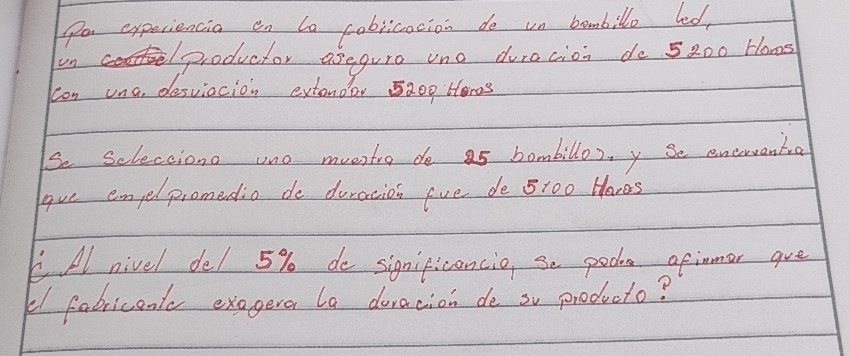 Por experiencia en la fabricacion de un bombillo led,
un productor asegura una duracion de 5200 Horas
con una. desviación extandar 5200 Horas
Se Selecciona una muestra de 25 bombillos. y Se encuentra
que en el promedio de duración fue de 5100 Horas
¿ Al nivel del 5% de significancia, se podra afirmar que
el fabricante exagera la duración de su producto?